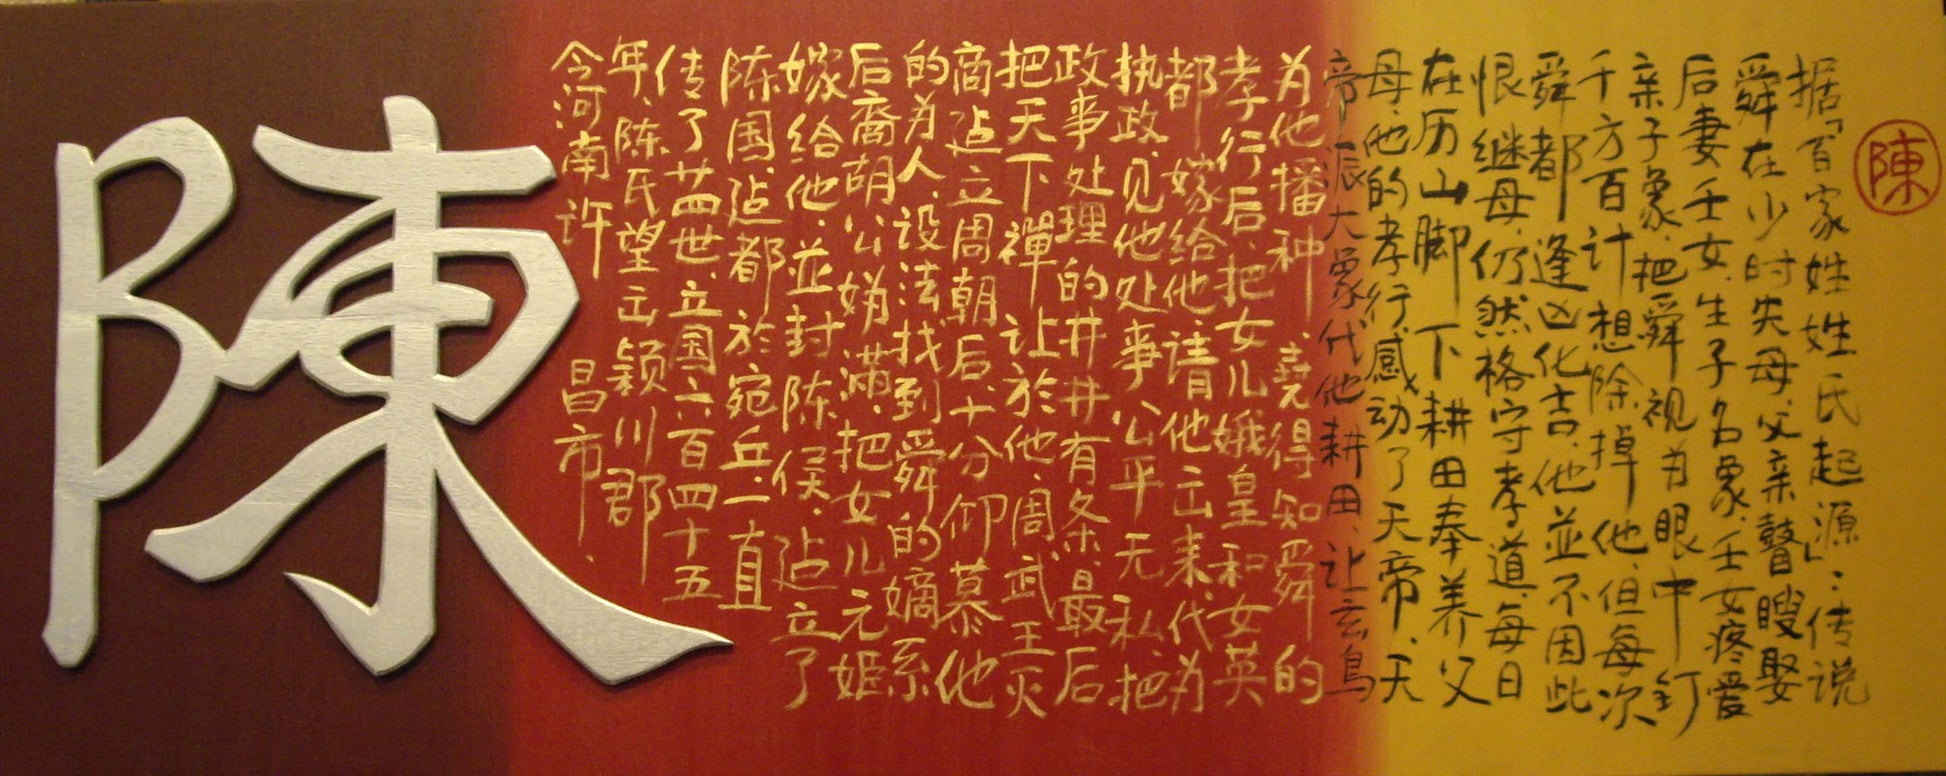 陳
据「百家姓姓氏起源」:传说
舜在少时失母、父亲瞽瞍娶
后妻壬女、生子名象、壬女疼爱
亲子象、把舜视为眼中钉
千方百计想除掉他、但每次
舜都逢凶化吉、他並不因此
恨继母、仍然格守孝道、每日
在历山脚下耕田奉养父
母、他的孝行感动了天帝、天
帝派大象代他耕田、让云鳥
为他播种、堯得知舜的
孝行后、把女儿娥皇和女英
都嫁给他、请他出来代为
执政、见他处事公平无私、把
政事处理的井井有条、最后
把天下禪让於他、周武王灭
商、建立周朝后、十分仰慕他
的为人、设法找到舜的嫡系
后裔胡公妫满、把女儿元姬
嫁给他、並封陈侯、建立了
陈国、建都於宛丘、一直
传了廿四世、立国六百四十五
年、陈氏望出颖川郡
今河南许昌市.
陳